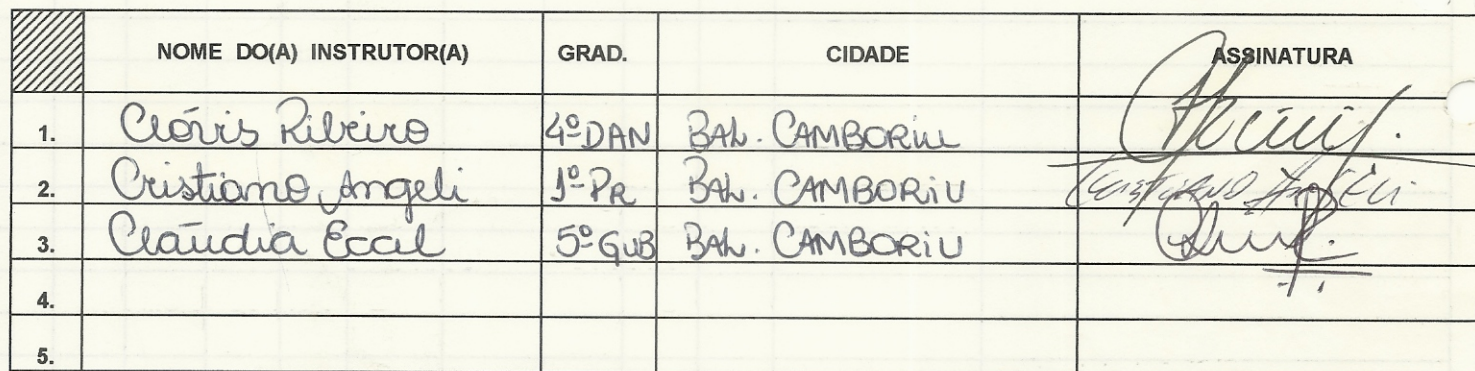 NOME DO(A) INSTRUTOR(A) GRAD. CIDADE ASSINATURA
1. Clóvis Ribeiro 4º DAN BAL. CAMBORIU
2. Cristiano Angeli 1º PR BAL. CAMBORIU CRISTIANO ANGELI
3. Claúdia Eccel 5º GUB BAL. CAMBORIU
4.
5.